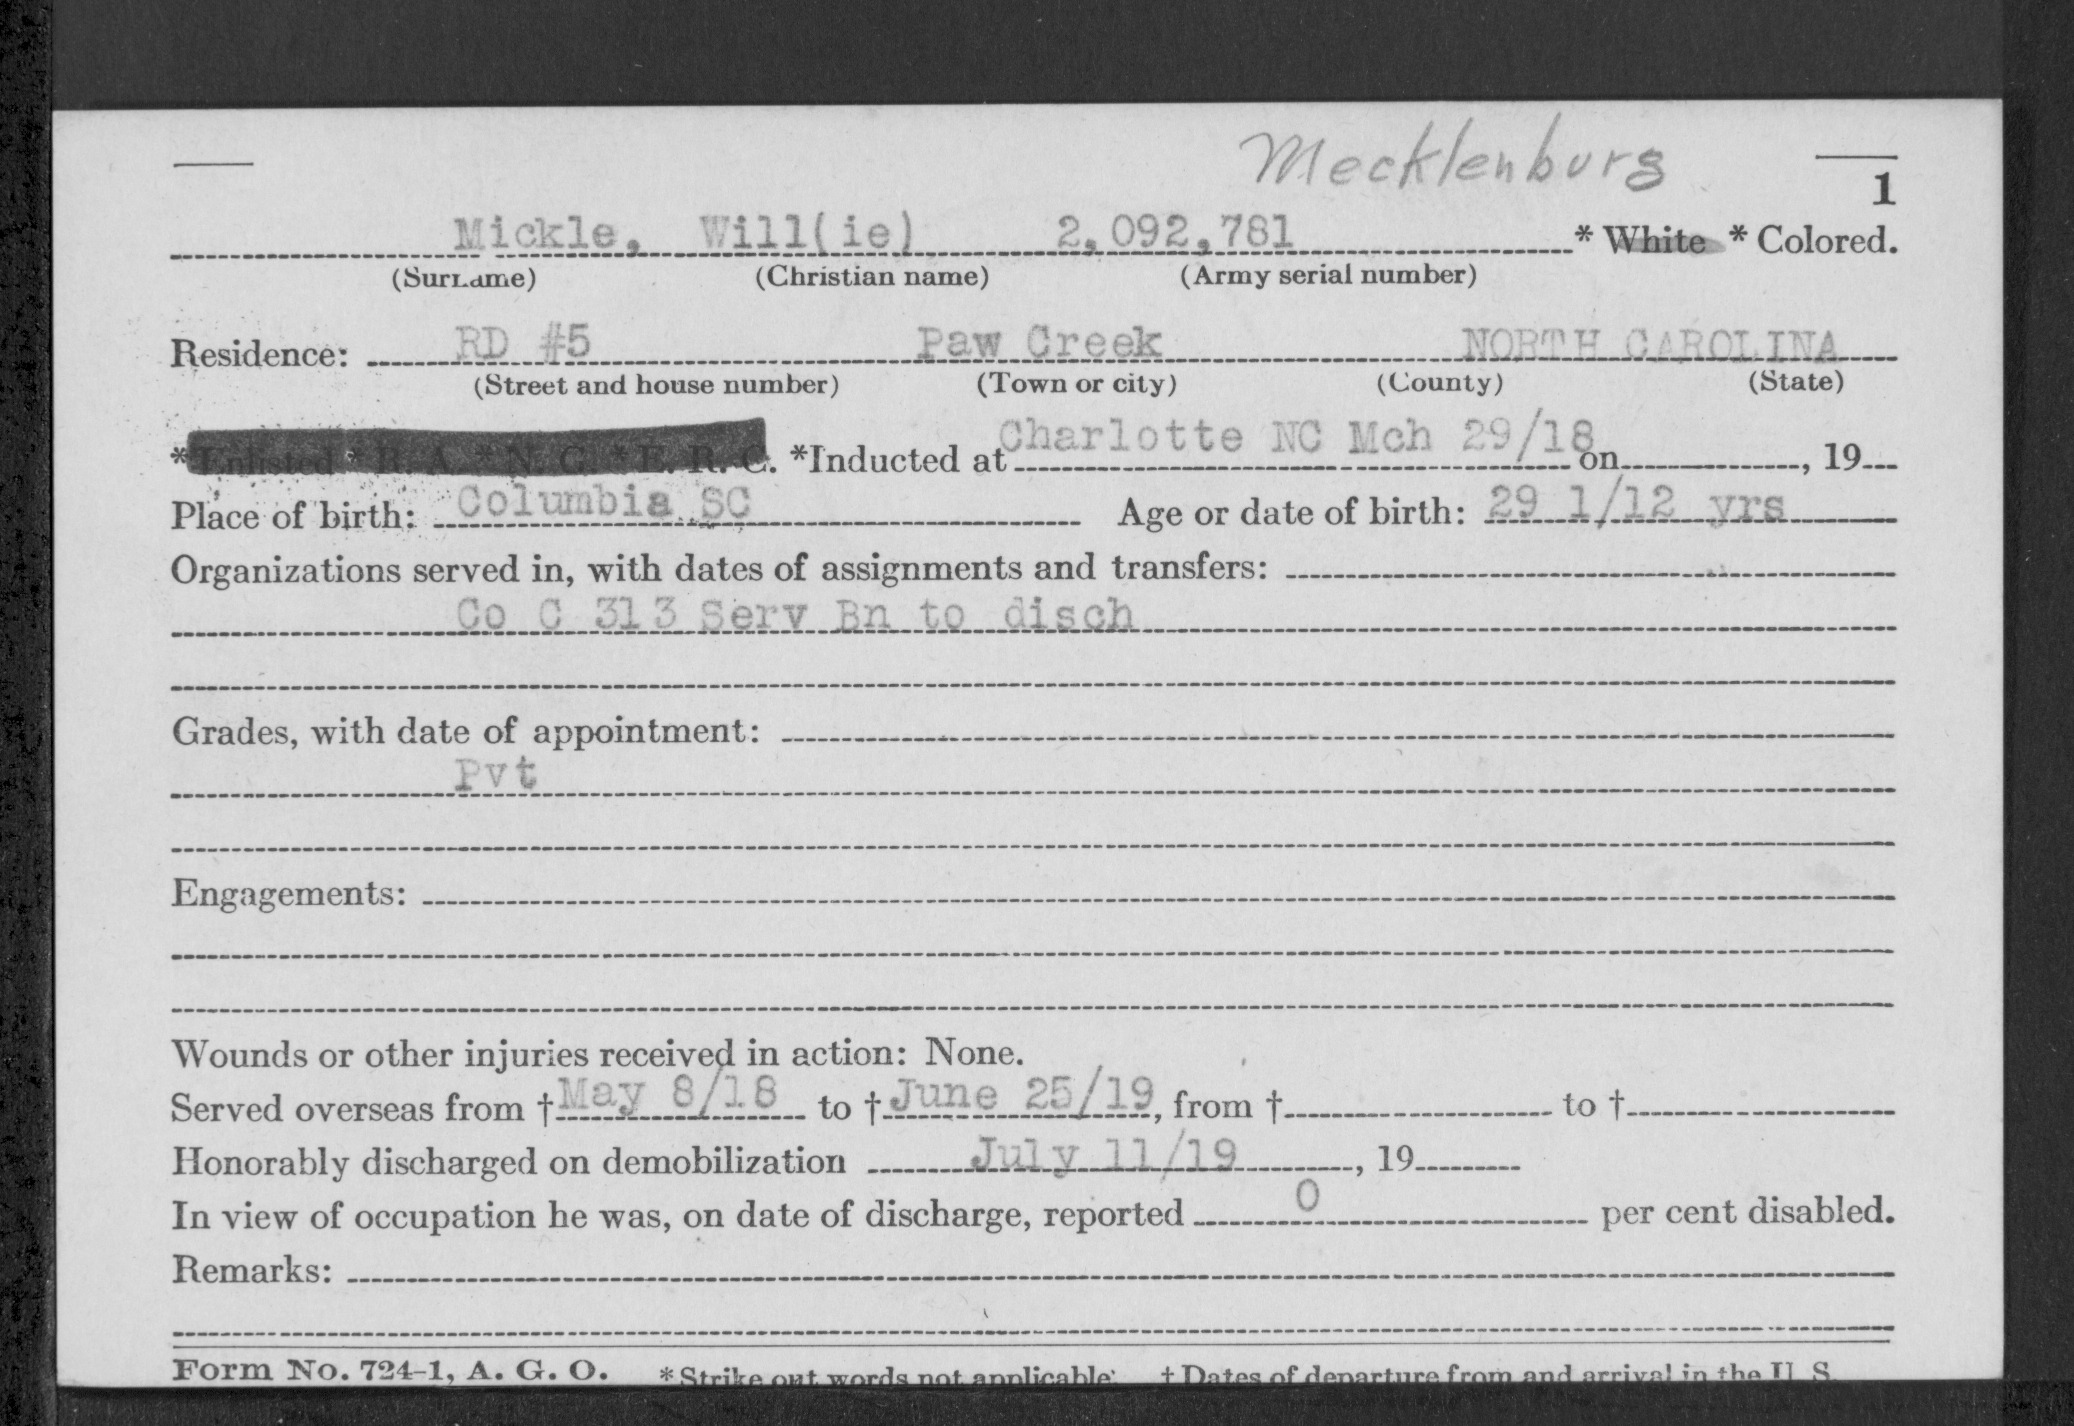 Mecklenburg
1
Mickle, Will(ie) 2,092,781 * White * Colored.
(Surname) (Christian name) (Army serial number)
Residence: RD #5 Paw Creek NORTH CAROLINA
(Street and house number) (Town or city) (County) (State)
* Enlisted * R. A. * N. G. * E. R. C. *Inducted at Charlotte NC Mch 29/18 on , 19
Place of birth: Columbia SC Age or date of birth: 29 1/12 yrs
Organizations served in, with dates of assignments and transfers:
Co C 313 Serv Bn to disch
Grades, with date of appointment:
Pvt
Engagements:
Wounds or other injuries received in action: None.
Served overseas from † May 8/18 to † June 25/19, from † to †
Honorably discharged on demobilization July 11/19 , 19
In view of occupation he was, on date of discharge, reported 0 per cent disabled.
Remarks:
Form No. 724-1, A. G. O. * Strike out words not applicable. † Dates of departure from and arrival in the U. S.